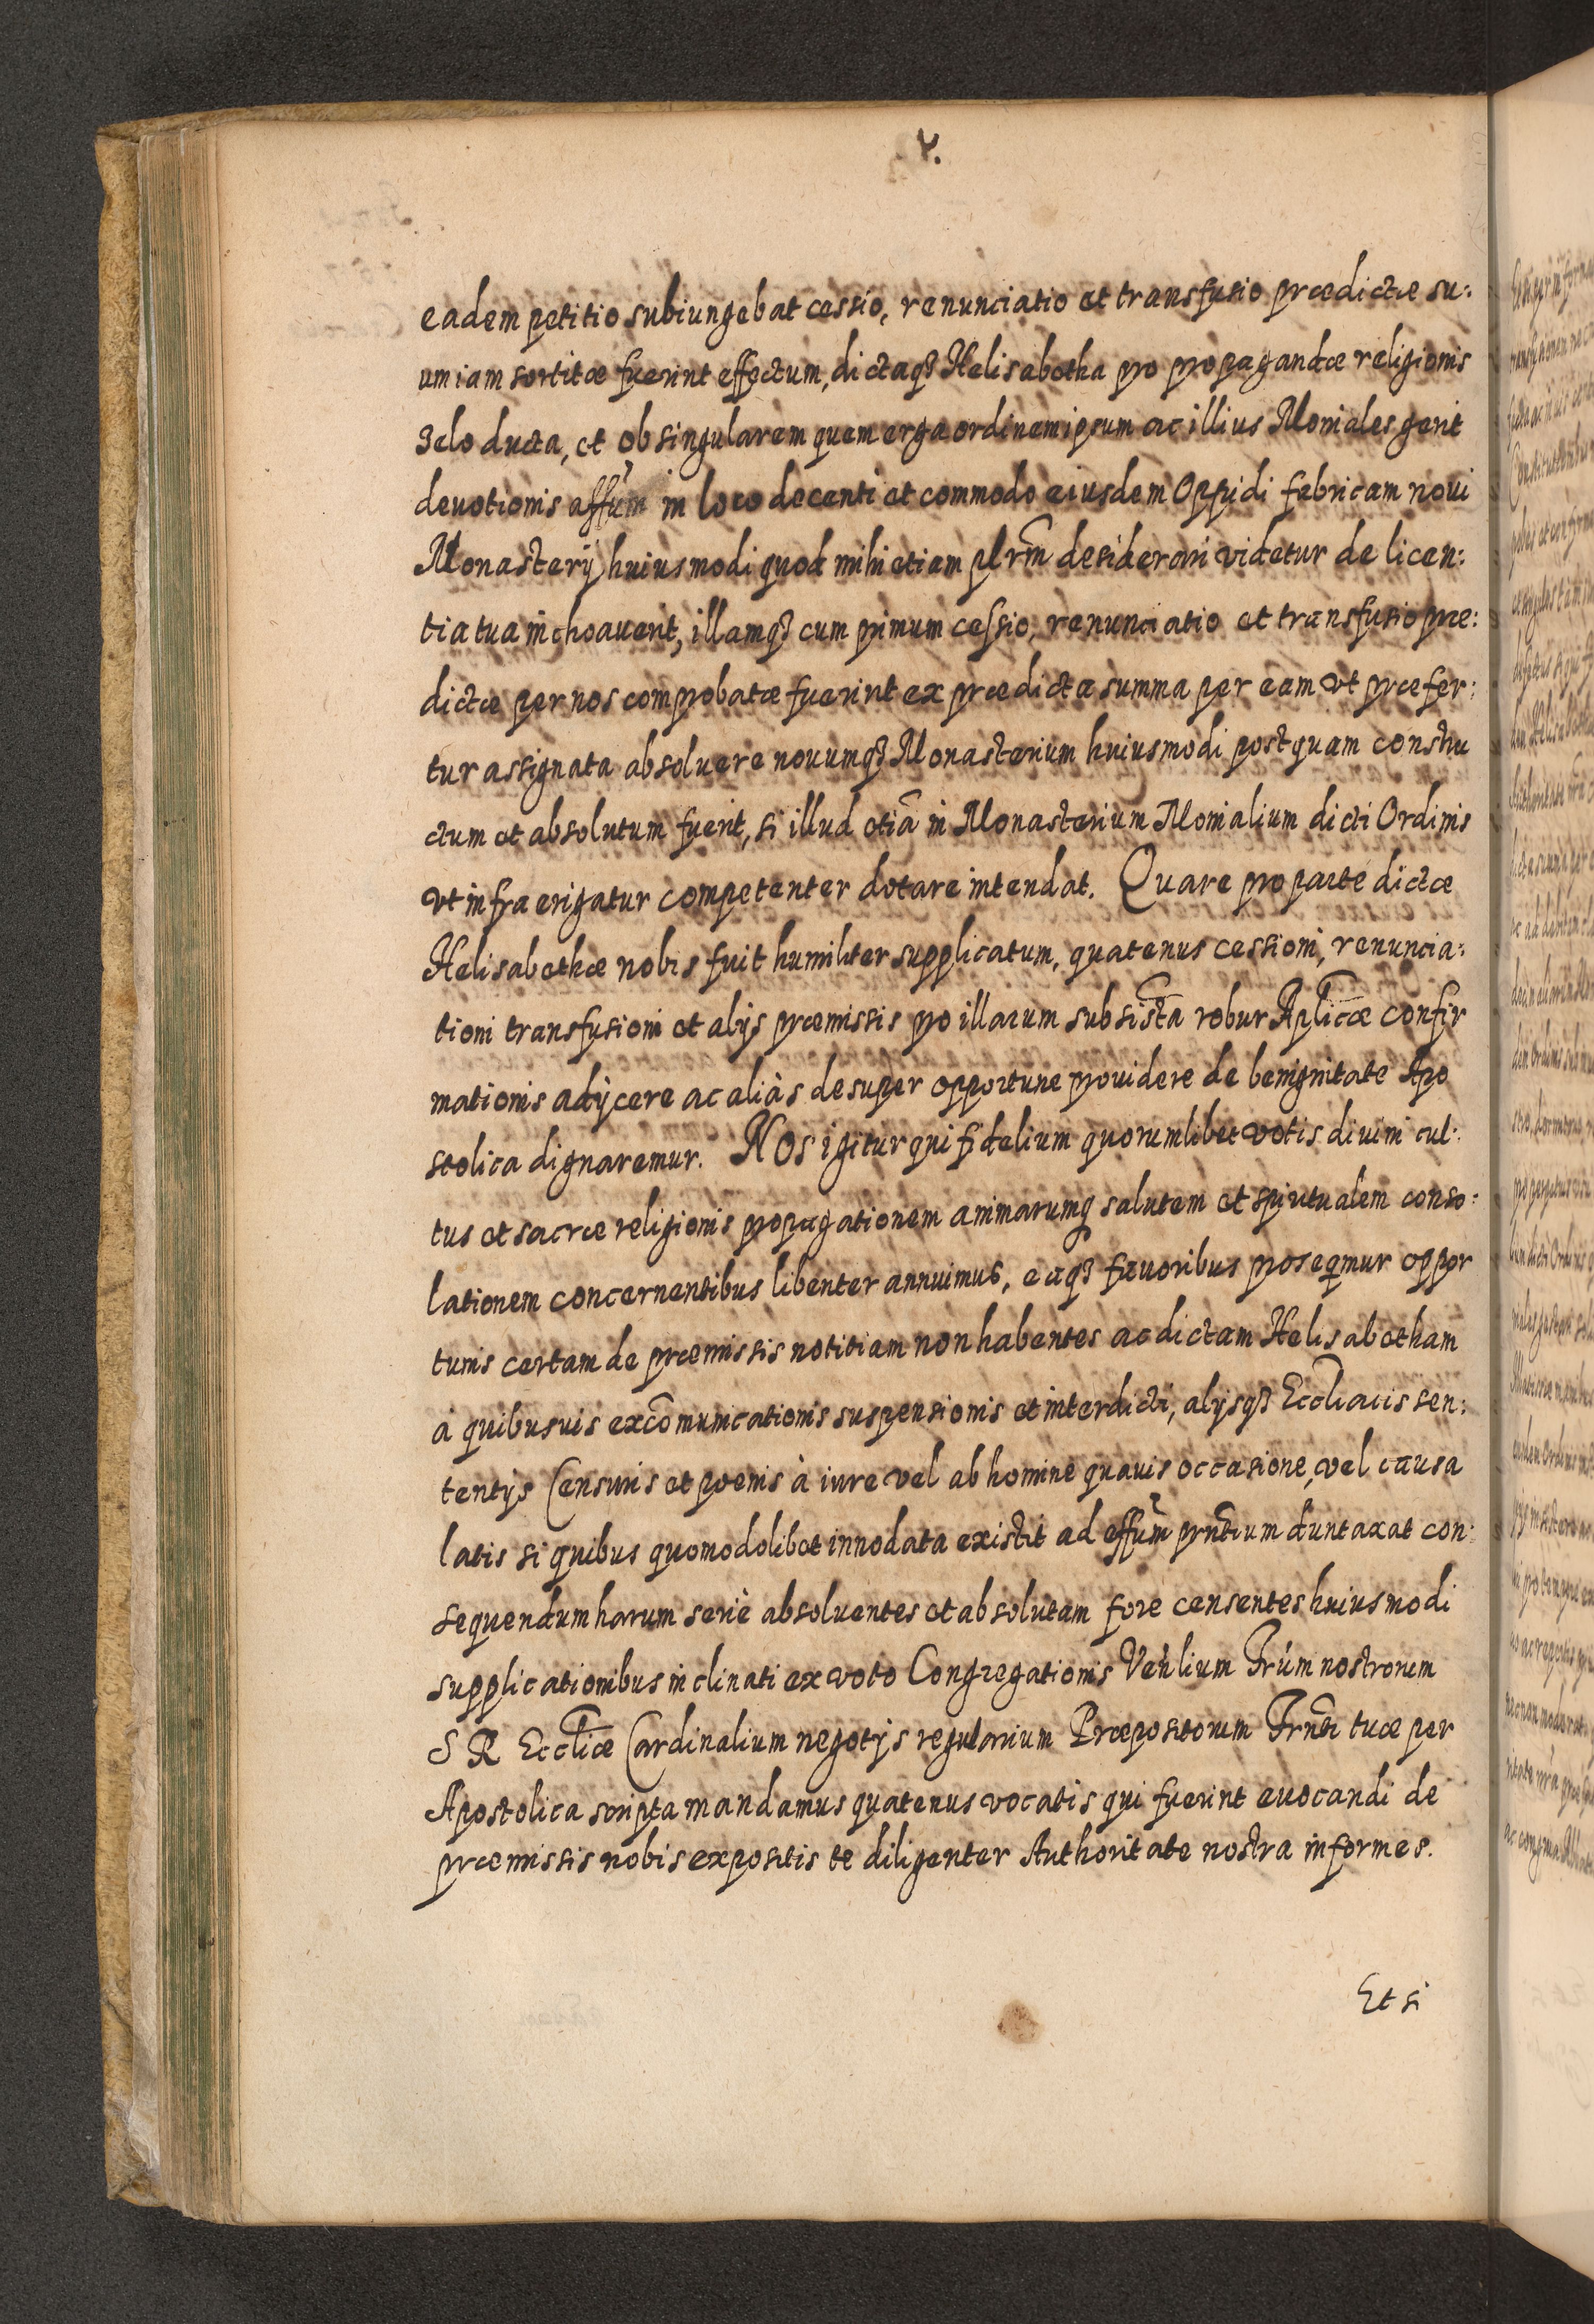 4.
eadem petitio subiungebat cessio, renunciatio et transfusio prædictæ su:
um iam sortitæ fuerint effectum, dictaq3 Helisabetha pro propagandæ religionis
zelo ducta, et ob singularem quem erga ordinem ipsum ac illius Moniales gerit
deuotionis affūm in loco decenti et commodo eiusdem Oppidi fabricam noui
Monasterÿ huiusmodi quod mihi etiam plrm̄ desiderari videtur de licen:
tia tua inchoauerit, illamq3 cum primum cessio, renunciatio et transfusio præ:
dictæ per nos comprobatæ fuerint ex prædicta summa per eam vt præfer:
tur assignata absoluere nouumq3 Monasterium huiusmodi postquam constru
ctum et absolutum fuerit, si illud etiā in Monasterium Monialium dicti Ordinis
vt infra erigatur competenter dotare intendat. Quare pro parte dictæ
Helisabethæ nobis fuit humiliter supplicatum, quatenus cessioni, renuncia:
tioni transfusioni et alÿs præmissis pro illarum subsis̄ta robur Aplicæ confir
mationis adÿcere ac aliàs desuper opportune prouidere de benignitate Apo
stolica dignaremur. NOS igitur qui fidelium quorumlibet votis diuini cul:
tus et sacræ religionis propagationem animarumq salutem et spiritualem conso:
lationem concernentibus libenter annuimus, eaq3 fauoribus proseqmur oppor
tunis certam de præmissis notitiam non habentes ac dictam Helisabetham
à quibusuis excōmunicationis suspensionis et interdicti, alÿsq3 Eccliacis sen:
tentÿs Censuris et poenis à iure vel ab homine quauis occasione, vel causa
latis si quibus quomodolibet innodata existit ad effūm prntium duntaxat con:
sequendum harum serie absoluentes et absolutam fore censentes huiusmodi
supplicationibus inclinati ex voto Congregationis Ven̄lium Frūm nostrorum
S R Eccliæ Cardinalium negotÿs regularium Præpositorum Frn̄ti tuæ per
Apostolica scripta mandamus quatenus vocatis qui fuerint euocandi de
præmissis nobis expositis te diligenter Authoritate nostra informes.
Et si